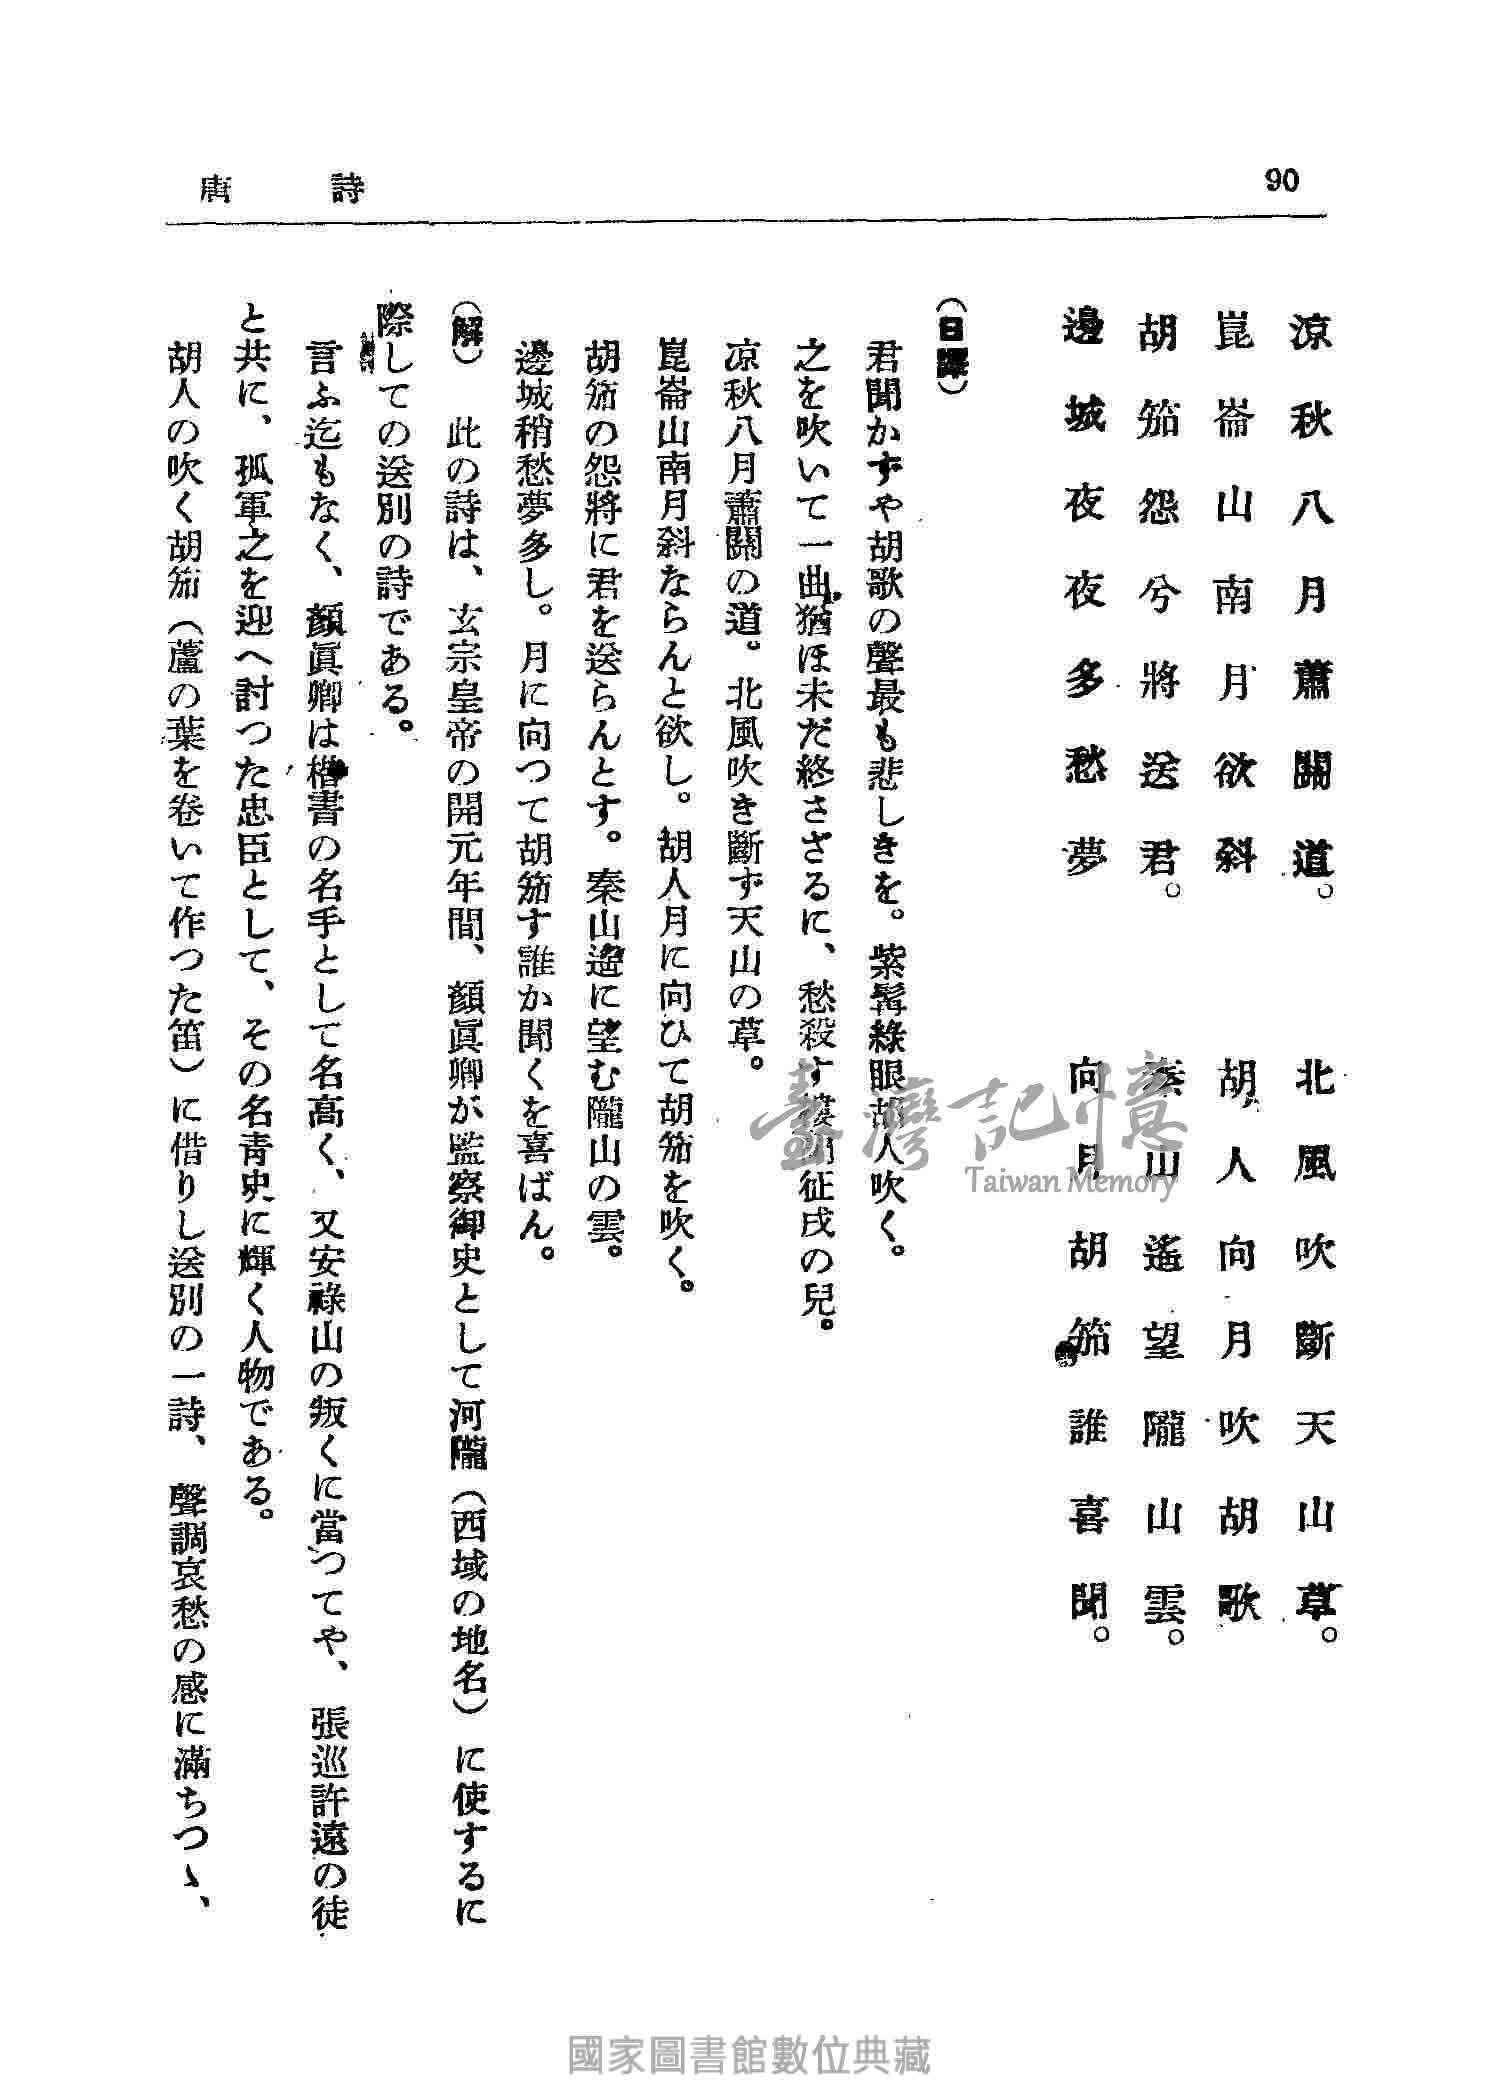 唐詩
90
涼秋八月蕭關道。 北風吹斷天山草。
崑崙山南月欲斜 胡人向月吹胡歌
胡笳怨兮將送君。 秦山遙望隴山雲。
邊城夜夜多愁夢 向月胡笳誰喜聞。
(日譯)
君聞かずや胡歌の聲最も悲しきを。紫髯綠眼胡人吹く。
之を吹いて一曲猶ほ未だ終さざるに、愁殺す樓蘭征戍の兒。
凉秋八月蕭關の道。北風吹き斷ず天山の草。
崑崙山南月斜ならんと欲し。胡人月に向ひて胡笳を吹く。
胡笳の怨將に君を送らんとす。秦山遙に望む隴山の雲。
邊城稍愁夢多し。月に向つて胡笳す誰か聞くを喜ばん。
(解) 此の詩は、玄宗皇帝の開元年間、顏眞卿が監察御史として河隴(西域の地名)に使するに
際しての送別の詩である。
言ふ迄もなく、顏眞卿は楷書の名手として名高く、又安祿山の叛くに當つてや、張巡許遠の徒
と共に、孤軍之を迎へ討つた忠臣として、その名靑史に輝く人物である。
胡人の吹く胡笳(蘆の葉を卷いて作つた笛)に借りし送別の一詩、聲調哀愁の感に滿ちつゝ、
臺灣記憶
Taiwan Memory
國家圖書館數位典藏